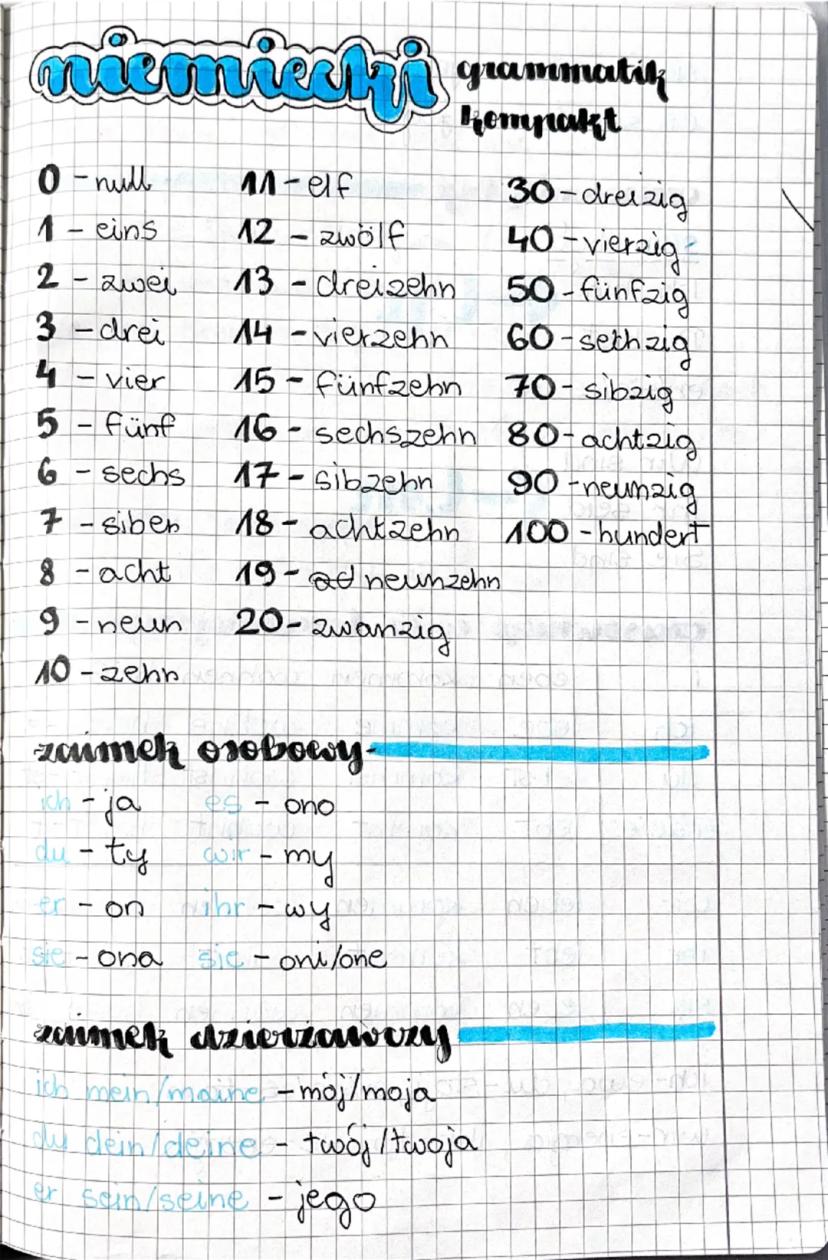 niemiecki grammatik
kompakt
0 - null
1 - eins
2 - zwei
3 - drei
4 - vier
5 - fünf
6 - sechs
7 - siben
8 - acht
9 - neun
10 - zehn
11 - elf
12 - zwölf
13 - dreizehn
14 - vierzehn
15 - fünfzehn
16 - sechszehn
17 - sibzehn
18 - achtzehn
19 - neunzehn
20 - zwanzig
30 - dreizig
40 - vierzig
50 - fünfzig
60 - sethzig
70 - sibzig
80 - achtzig
90 - neunzig
100 - hundert
zaimek osobowy
ich - ja es - ono
du - ty wir - my
er - on ihr - wy
sie - ona sie - oni/one
zaimek dzierżawczy
ich mein/maine - mój/moja
du dein/deine - twój/twoja
er sein/seine - jego